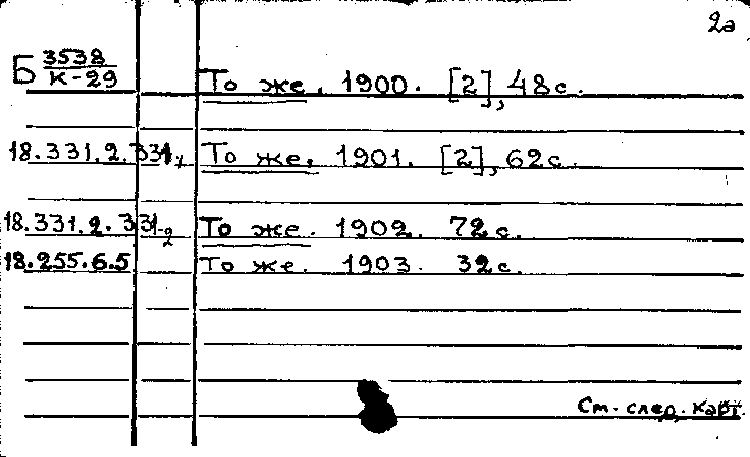 2а
Б 3538/К-29 То же. 1900. [2], 48с.
18.331.2.331-1 То же. 1901. [2], 62с.
18.331.2.331-2 То же. 1902. 72с.
18.255.6.5 То же. 1903. 32с.
См. след. карт.